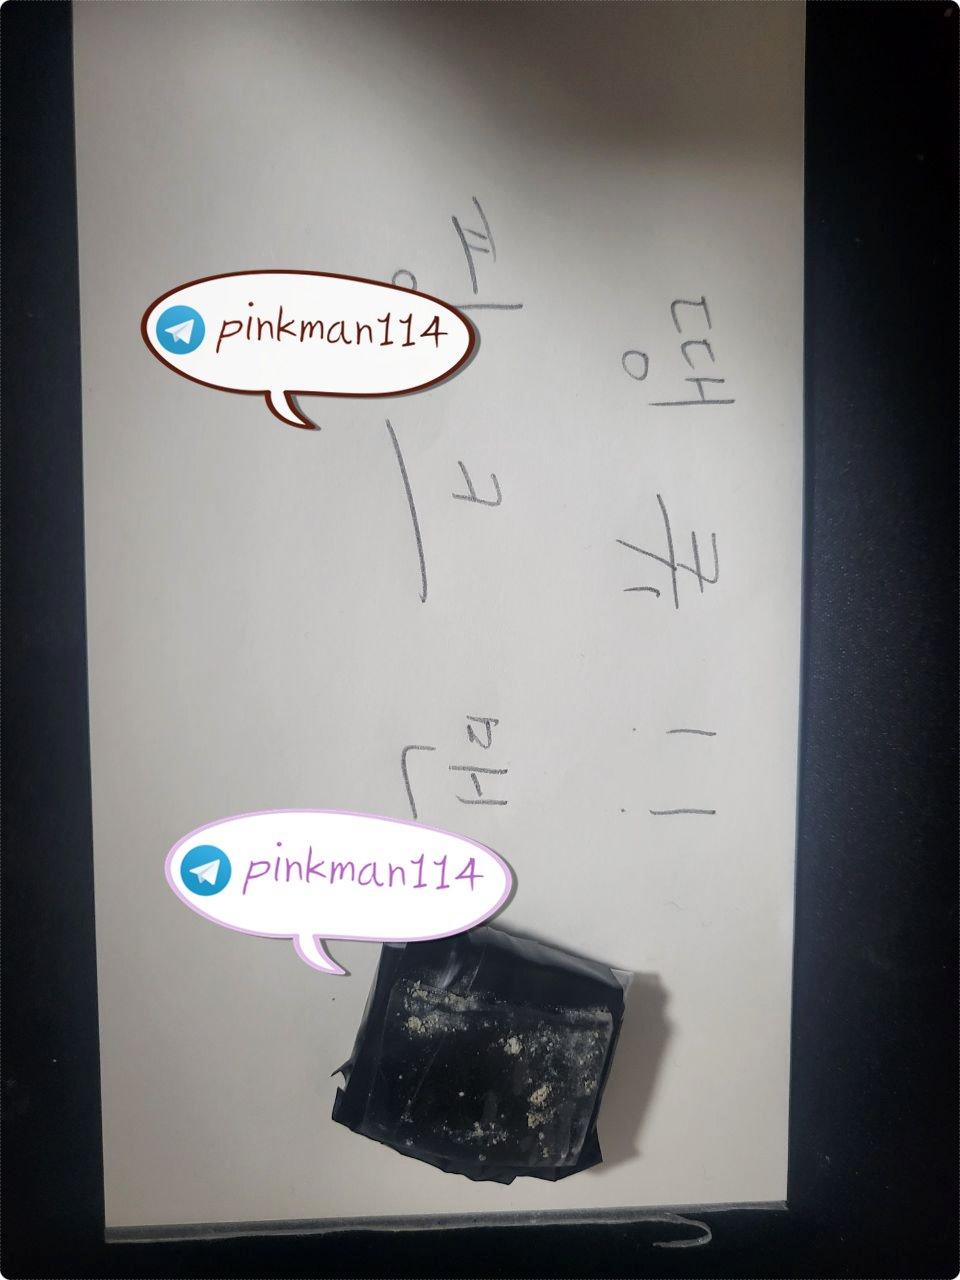 땡큐!!
핑크맨
pinkman114
pinkman114